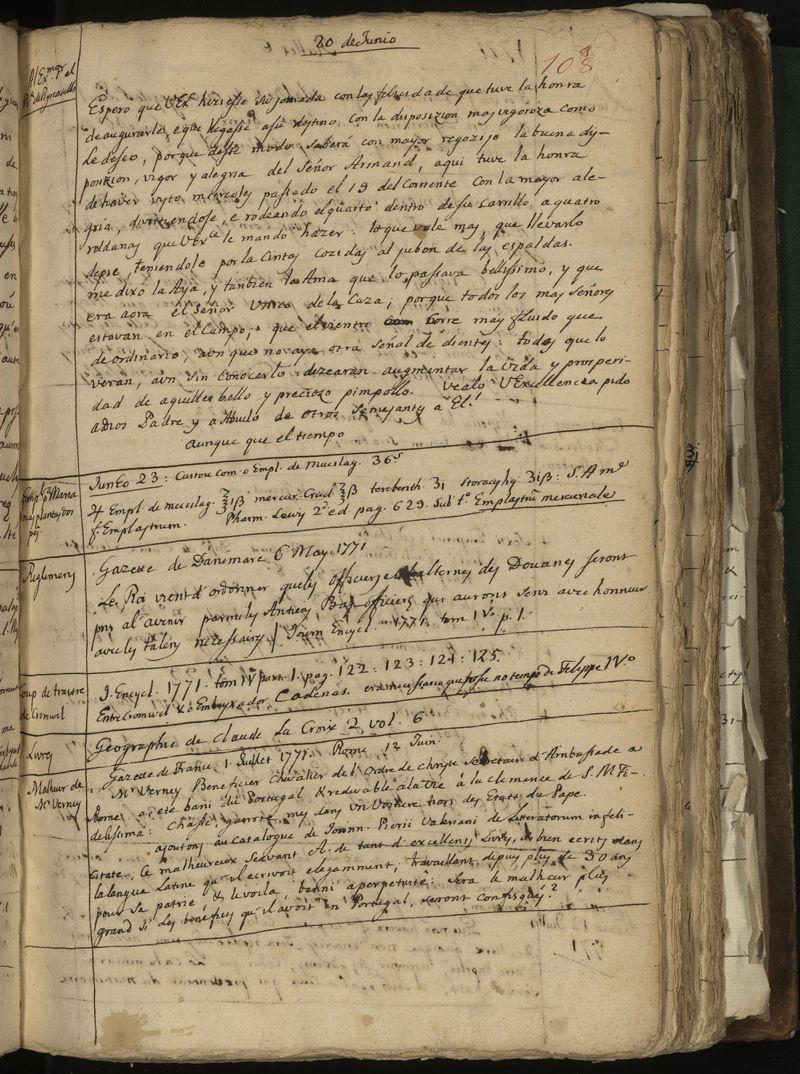 20 de Junio
108
Al Exmo. Sgr el
Espero que VEx.ª hiziesse su jornada con las felicidades que tuve la honra
de augurarle, e que llegasse a su destino con la disposizion mas vigoroza como
le deseo, porque deste modo saberá con mayor regozijo la buena dis-
posizion, vigor y alegria del Señor Armand, aqui tuve la honra
de haver visto miercoles passado el 19 del Corriente con la mayor ale-
gria, divirtiendose, e rodeando el quarto dentro de su Carrillo a quatro
roldanas que VEx.ª le mando hazer: lo que vale mas, que llevarlo
depie, teniendole por la Cintas Cozidas al jubon de las espaldas.
me dixo la Aya, y tanbien la Ama que lo passava belissimo, y que
era aora el Señor Unico de la Caza, porque todos los mas Señores
estavan en el Campo, que el vientre corre mas fluido que
de ordinario, aun que no aya otra Señal de dientes: todos que lo
veran, aun sin Conocerlo dizearan augmentar la Vida y prosperi-
dad de aquelle bello y preciozo pimpollo. Vealo VExcellencia pido
a Dios Padre y Abuelo de otros Semejantes a El!
aunque que el tiempo
Junto 23: Custou com o Empl. de Mucilag. 36s
Empl.to Maria
mas plantas dos
pes
♃ Empl. de mucilag. ʒiß mercur. Crud ʒß terebinth. ʒi storacis liq. ʒiß: S. A. me
f. Emplastrum. Pharm. Lewis 2ª ed. pag. 629. Sub to. Emplastrū mercuriale
Reglemens
Gazette de Danemarc 6 May. 1771
Le Roi vient d'ordonner que les officiers subalternes des Douanes seront
pris al avenir parmi les Antiens Bas-officiers qui auront servi avec honneur
avec les talens necessairs / Journ Encycl. 1771. tom IVo p. 1.
Coup de traitre
de Cromwel
J. Encycl. 1771. tom IV part. 1. pag. 122: 123: 124: 125.
Entre Cromwel & o Embaxador Cadenas. era no tempo de Filippe IVo
Livres
Geographie de Claude La Croix 2 vol. 6
Malheur de
Mr Verney
Gazette de France 1 Juillet 1771. Rome 12 Juin.
Mr Verney Beneficier Chevalier de l'Ordre de Christ Secretaire d'Ambassade a
Rome a eté bani du Portugal & redevable a la vie à la clemence de S. M Fi-
delissima: Chassé, garroté, mis dans un Voiture hors des Etats du Pape.
ajoutons au Catalogue de Joann. Pierii Valeriani de Litteratorum infeli-
citate, Ce malheureux Savant A. de tant d'excellens Livres, et bien ecrits dans
la langue Latine qu'il ecrivoit elegamment; travaillant depuis plus de 30 ans
pour sa patrie & le voila banni a perpetuité: Sera le malheur plus
grand si les benefices qu'il avoit en Portugal, seront confisqués?